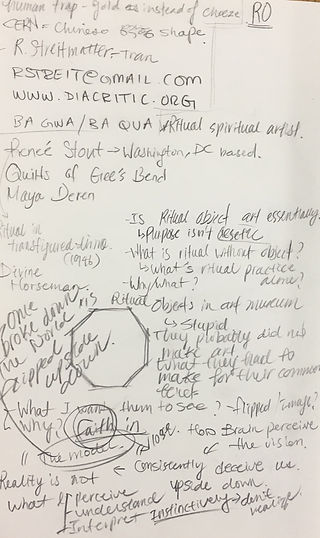 human trap - gold as instead of cheeze.
RO
CERN = Chinese shape.
- R. Streitmatter-Tran
RSTREIT@GMAIL.COM
WWW.DIACRITIC.ORG
BA GWA/BA QUA Ritual spiritual artist.
Reneé Stout → Washington, DC based.
Quilts of Gee's Bend
Maya Deren
Ritual in
transfigured time
(1946)
Divine
Horseman.
- Is Ritual object art essentially.
↳ Purpose isn't
- What is ritual without object?
↳ what's ritual practice
alone?
- Why/what?
Ritual Objects in art museum
↳ Stupid
They probably did not
make art
what they had to
make for their common
Once
broke down
the world
flipped upside
down.
- What I want them to see? - flipped image?
Why?
faith in
those
Brain perceive
the vision.
"The model.
← Consistently deceive us.
Reality is not
upside down.
what we
perceive
understand
Interpret
Instinctively → don't
realize